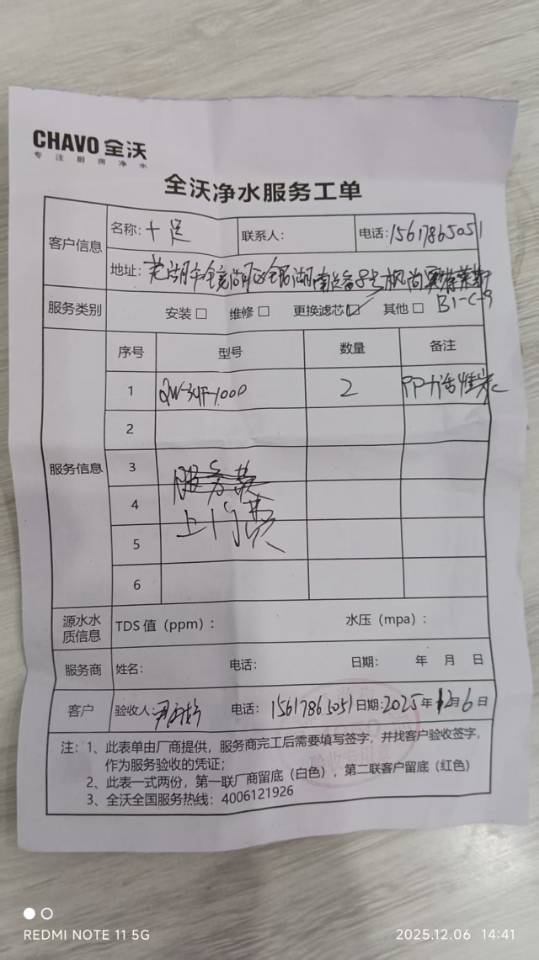 CHAVO 全沃
专 注 厨 房 净 水
全沃净水服务工单
客户信息
名称：十足
联系人：
电话：15617865051
地址：芜湖市镜湖区银湖南路
B1-C-9
服务类别
安装□ 维修□ 更换滤芯☑ 其他□
服务信息
序号 型号 数量 备注
1 QW-34F-1000 2 PP+活性炭
2
3 服务费
4
上门费
5
6
源水水质信息
TDS 值（ppm）： 水压（mpa）：
服务商 姓名： 电话： 日期： 年 月 日
客户 验收人： 电话：15617865051 日期：2025年12月6日
注：1、此表单由厂商提供，服务商完工后需要填写签字，并找客户验收签字，
作为服务验收的凭证；
2、此表一式两份，第一联厂商留底（白色），第二联客户留底（红色）
3、全沃全国服务热线：4006121926
REDMI NOTE 11 5G
2025.12.06 14:41